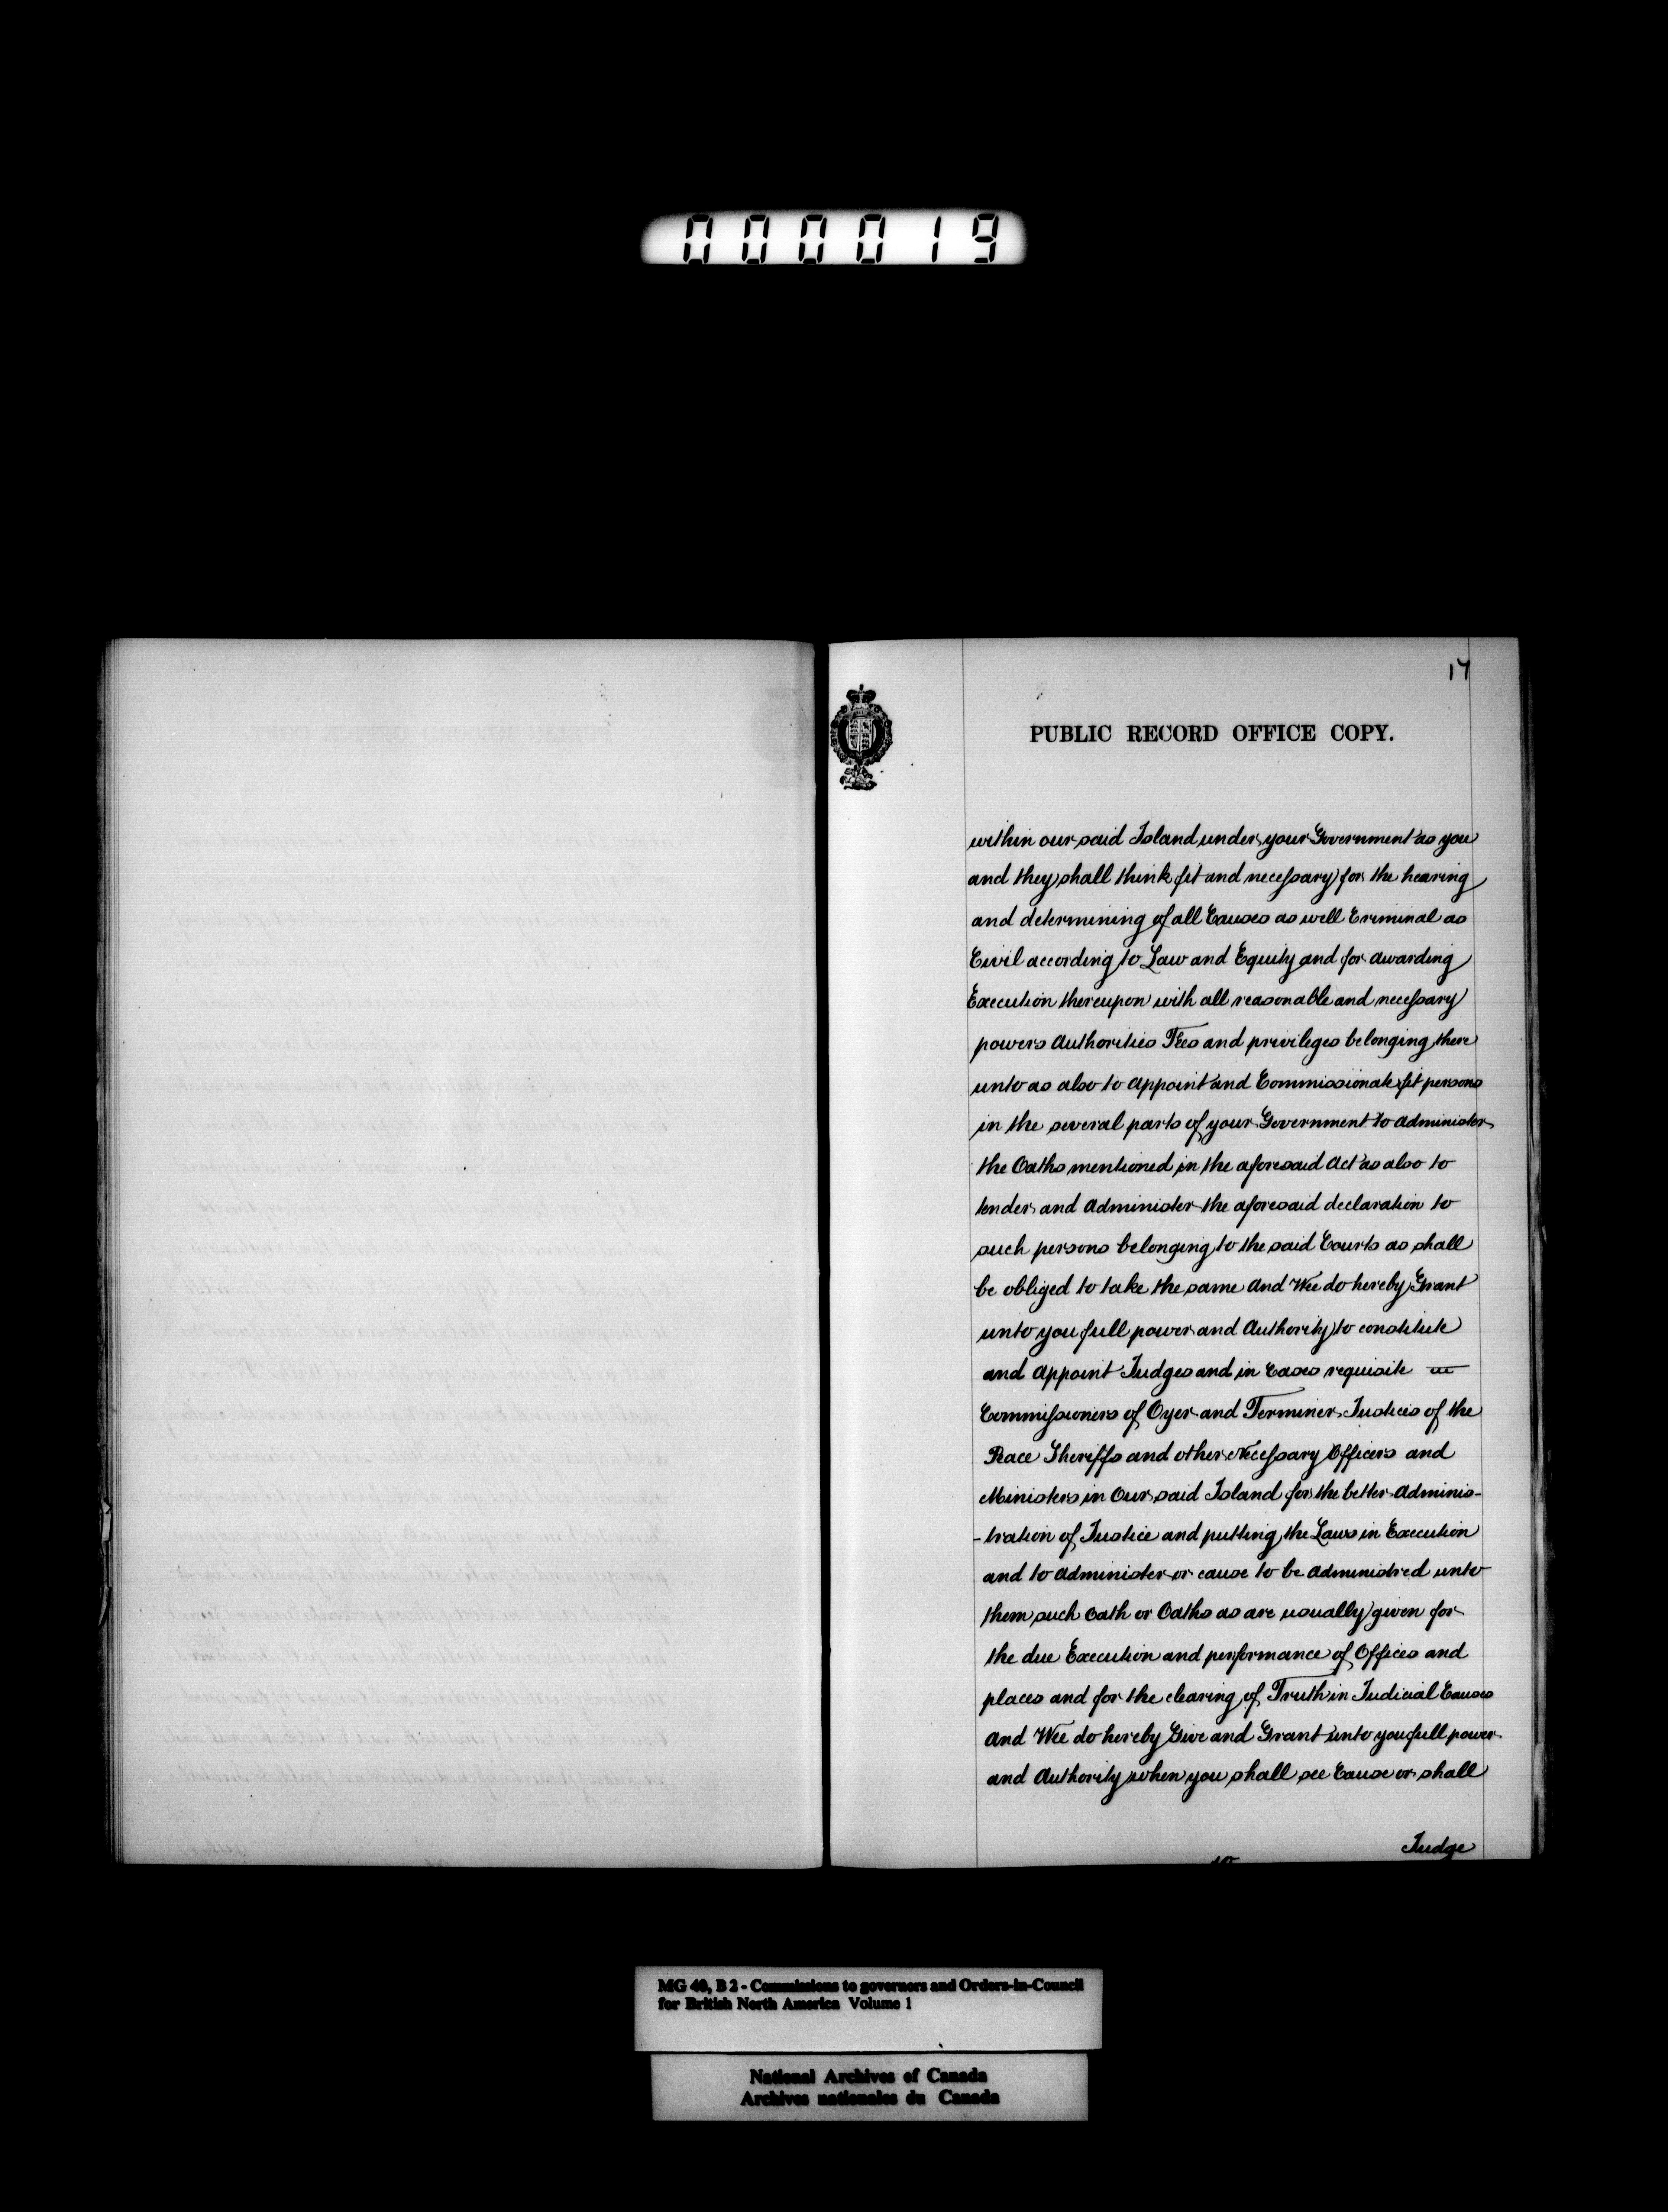 000019
17
PUBLIC RECORD OFFICE COPY.
within our said Island under your Government as you
and they shall think fit and necessary for the hearing
and determining of all Causes as well Criminal as
Civil according to Law and Equity and for awarding
Execution thereupon with all reasonable and necessary
powers Authorities Fees and privileges belonging there
unto as also to Appoint and Commissionate fit persons
in the several parts of your Government to administer
the Oaths mentioned in the aforesaid Act as also to
tender and Administer the aforesaid declaration to
such persons belonging to the said Courts as shall
be obliged to take the same And Wee do hereby Grant
unto you full power and Authority to constitute
and Appoint Judges and in Cases requisite
Commissioners of Oyer and Terminer Justices of the
Peace Sheriffs and other Necessary Officers and
Ministers in Our said Island for the better Adminis-
-tration of Justice and putting the Laws in Execution
and to Administer or cause to be Administred unto
them such Oath or Oaths as are usually given for
the due Execution and performance of Offices and
places and for the clearing of Truth in Judicial Causes
And Wee do hereby Give and Grant unto you full power
and Authority when you shall see Cause or shall
Judge
MG 40, B 2 - Commissions to governors and Orders-in-Council
for British North America Volume 1
National Archives of Canada
Archives nationales du Canada